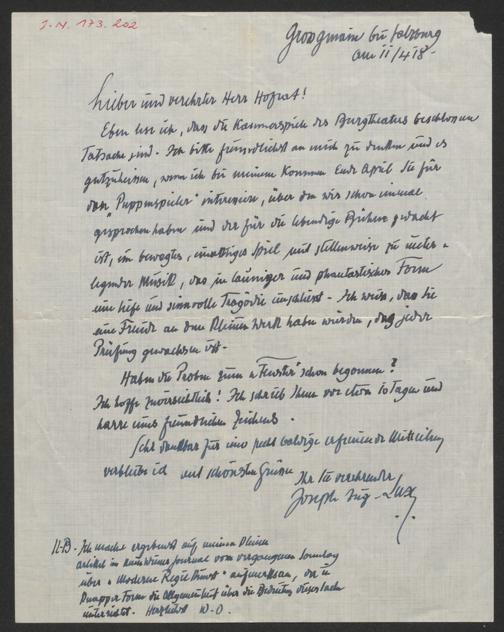 J.N. 173.202
Grossgmain bei Salzburg
am 11/4 18.
Lieber und verehrter Herr Hofrat!
Eben lese ich, dass die Kammerspiele des Burgtheaters beschlossene
Tatsache sind. Ich bitte freundlichst an mich zu denken und es
gutzuheissen, wenn ich bei meinem Kommen Ende April Sie für
das "Puppenspieler" interessiere, über das wir schon einmal
gesprochen haben und das für die lebendige Bühne gedacht
ist, ein bewegtes, einaktiges Spiel mit stellenweise zu unter-
legender Musik, das in launiger und phantastischer Form
eine tiefe und sinnvolle Tragödie einschliesst. Ich weiss, dass Sie
eine Freude an dem kleinen Werk haben würden, das jeder
Prüfung gewachsen ist.
Haben die Proben zum "Fenster" schon begonnen?
Ich hoffe zuversichtlich! Ich schrieb Ihnen vor etwa 10 Tagen und
harre eines freundlichen Zeichens.
Sehr dankbar für eine recht baldige erfreuende Mitteilung
verbleibe ich mit schönsten Grüssen
Ihr Sie verehrender
Joseph Aug. Lux
N.B. Ich mache ergebenst auf meinen kleinen
Artikel im Journal vom vergangenen Sonntag
über "Moderne Regiekunst" aufmerksam, der in
knapper Form die Allgemeinheit über die Bedeutung dieses Fachs
unterrichtet. Herzlichst W.O.